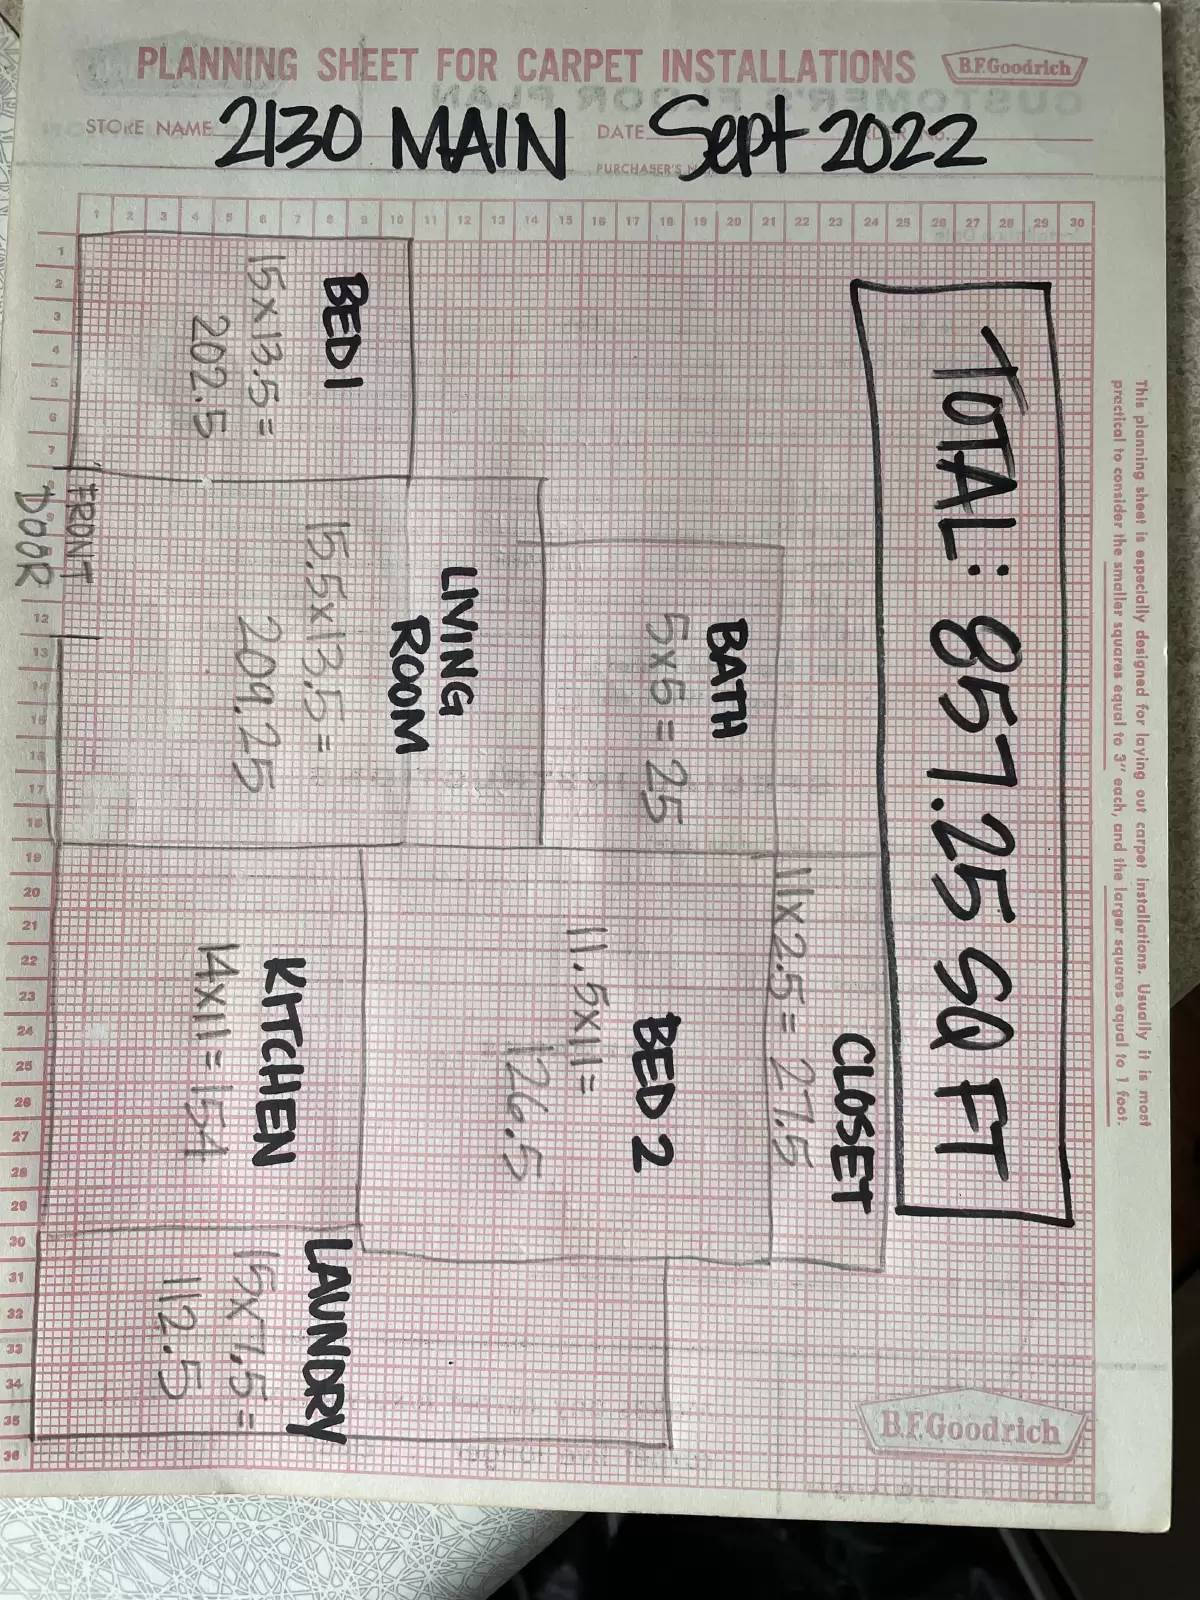 PLANNING SHEET FOR CARPET INSTALLATIONS
B.F.Goodrich
STORE NAME 2130 MAIN DATE Sept 2022
PURCHASER'S
1 2 3 4 5 6 7 8 9 10 11 12 13 14 15 16 17 18 19 20 21 22 23 24 25 26 27 28 29 30
1
2
3
4
5
6
7
12
13
14
15
16
17
18
19
20
21
22
23
24
25
26
27
28
29
30
31
32
33
34
35
36
This planning sheet is especially designed for laying out carpet installations. Usually it is most
practical to consider the smaller squares equal to 3" each, and the larger squares equal to 1 foot.
TOTAL: 857.25 SQ FT
BED 1
15x13.5=
202.5
FRONT
DOOR
LIVING
ROOM
15.5x13.5=
209.25
BATH
5x5=25
CLOSET
11x2.5=27.5
BED 2
11.5x11=
126.5
KITCHEN
14x11=154
LAUNDRY
15x7.5=
112.5
B.F.Goodrich